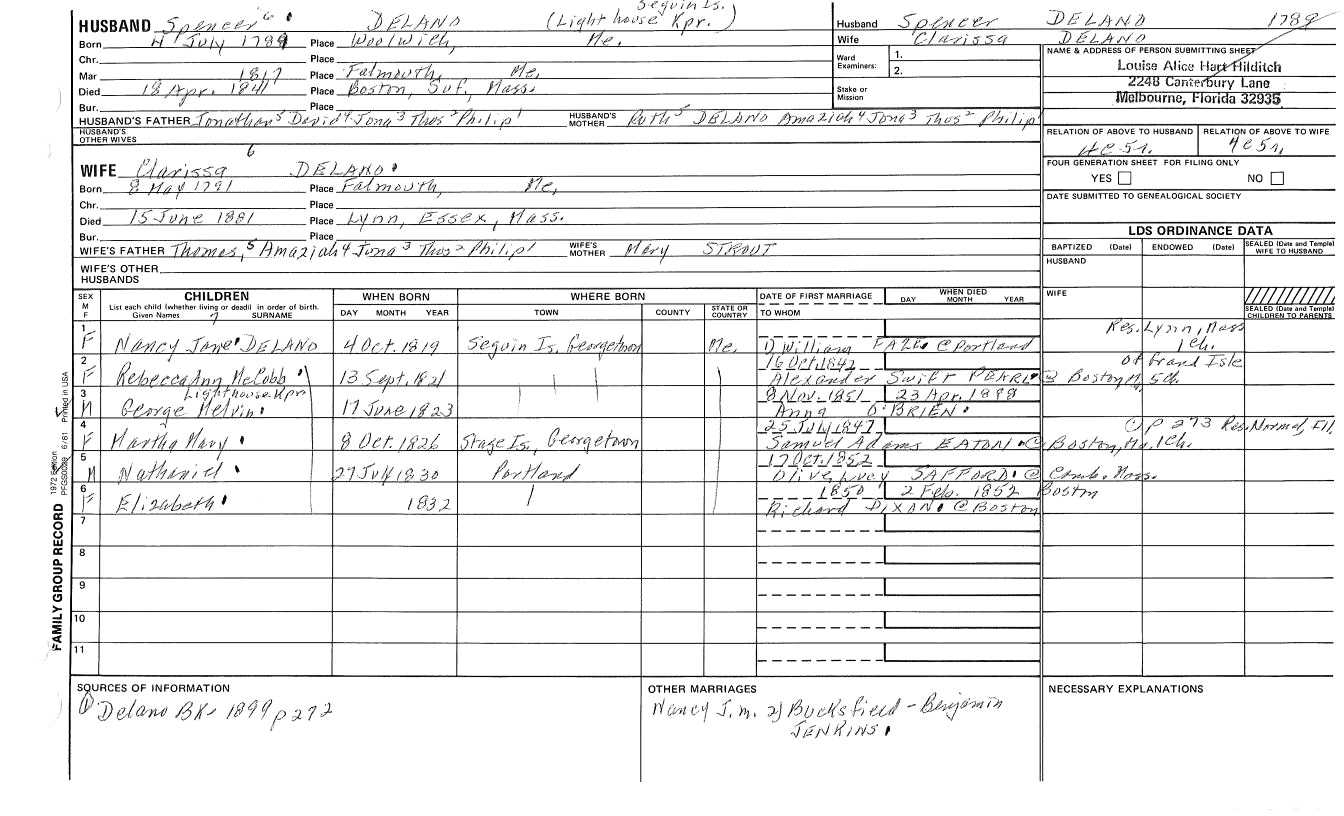 Seguin Is.
HUSBAND Spencer 6 DELANO (Lighthouse Kpr.)
Born 4 July 1789 Place Woolwich, Me.
Chr. Place
Mar 1817 Place Falmouth, Me,
Died 18 Apr. 1841 Place Boston, Suf, Mass.
Bur. Place
HUSBAND'S FATHER Jonathan 5 David 4 Jona 3 Thos 2 Philip 1 HUSBAND'S MOTHER Ruth 5 DELANO Amaziah 4 Jona 3 Thos 2 Philip 1
HUSBAND'S OTHER WIVES
WIFE Clarissa 6 DELANO
Born 8 May 1791 Place Falmouth, Me,
Chr. Place
Died 15 June 1881 Place Lynn, Essex, Mass.
Bur. Place
WIFE'S FATHER Thomas, 5 Amaziah 4 Jona 3 Thos 2 Philip 1 WIFE'S MOTHER Mary STROUT
WIFE'S OTHER HUSBANDS
Husband Spencer DELANO 1789
Wife Clarissa DELANO
Ward Examiners: 1.
2.
Stake or Mission
NAME & ADDRESS OF PERSON SUBMITTING SHEET
Louise Alice Hart Hilditch
2248 Canterbury Lane
Melbourne, Florida 32935
RELATION OF ABOVE TO HUSBAND RELATION OF ABOVE TO WIFE
4C 5r. 4C 5r,
FOUR GENERATION SHEET FOR FILING ONLY
YES NO
DATE SUBMITTED TO GENEALOGICAL SOCIETY
LDS ORDINANCE DATA
BAPTIZED (Date) ENDOWED (Date) SEALED (Date and Temple) WIFE TO HUSBAND
HUSBAND
WIFE
SEALED (Date and Temple) CHILDREN TO PARENTS
SEX M F CHILDREN WHEN BORN WHERE BORN DATE OF FIRST MARRIAGE WHEN DIED
List each child (whether living or dead) in order of birth. DAY MONTH YEAR
Given Names 7 SURNAME DAY MONTH YEAR TOWN COUNTY STATE OR COUNTRY TO WHOM
Res. Lynn, Mass
1 F Nancy Jane DELANO 4 Oct. 1819 Seguin Is, Georgetown Me, 1) William @ Portland 1 Ch.
16 Oct. 1842 Of Grand Isle
2 F Rebecca Ann McCobb 13 Sept. 1821 Alexander Swift PEARL @ Boston
Lighthouse Kpr 8 Nov. 1851 23 Apr. 1898
3 M George Melvin 17 June 1823 Anna O'BRIEN
25 July 1847 P 273 Res. Normal, Ill
4 F Martha Mary 8 Oct. 1826 Stage Is, Georgetown Samuel Adams EATON @ Boston, Ma, 1 Ch.
17 Oct. 1852
5 M Nathaniel 27 July 1830 Portland Olive SAFFORD @ Camb. Mass.
1850 2 Feb. 1852 Boston
6 F Elizabeth 1832 Richard DIXAN @ Boston
7
8
9
10
11
FAMILY GROUP RECORD 1972 Edition PFGS0089 6/81 Printed in USA
SOURCES OF INFORMATION
1 Delano BK- 1899 p 272
OTHER MARRIAGES
Nancy J. m. 2) Bucksfield - Benjamin
JENKINS
NECESSARY EXPLANATIONS